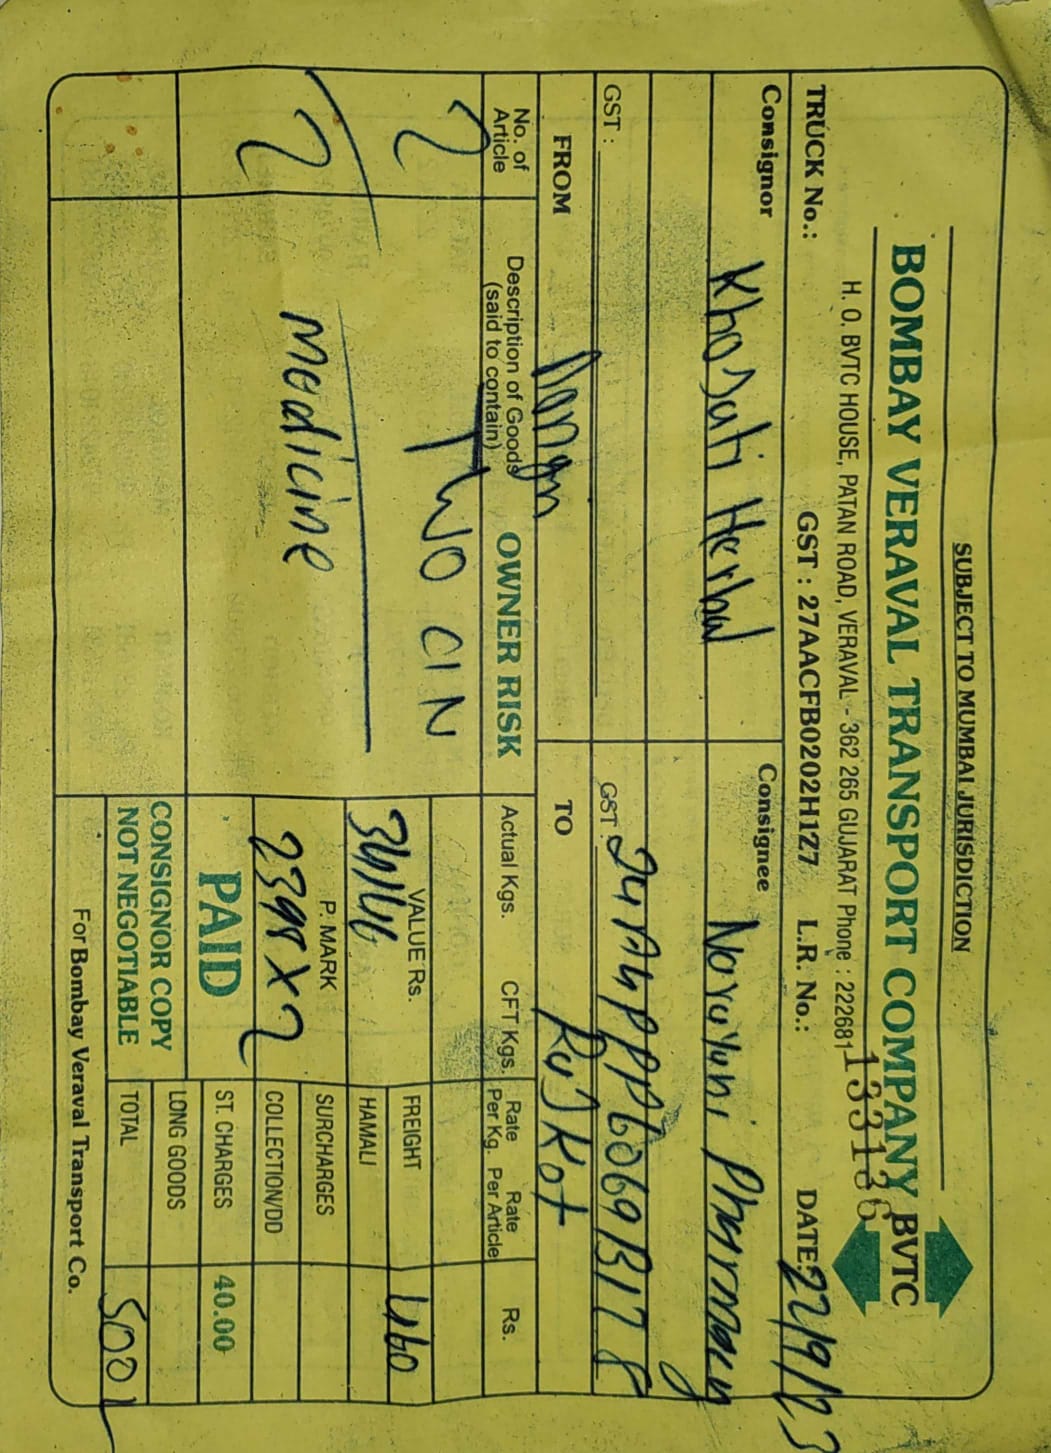 SUBJECT TO MUMBAI JURISDICTION
BOMBAY VERAVAL TRANSPORT COMPANY BVTC
H. O. BVTC HOUSE, PATAN ROAD, VERAVAL - 362 265 GUJARAT Phone : 222681
133136
TRUCK No.: GST : 27AACFB0202H1Z7 L.R. No.: DATE: 22/9/23
Consignor Consignee
Herbal Narayani Pharmacy
GST : GST :
FROM TO Rajkot
No. of Article
Description of Goods (said to contain)
OWNER RISK
Actual Kgs.
CFT Kgs.
Rate Per Kg.
Rate Per Article
Rs.
2 Two C/N
VALUE Rs.
FREIGHT 460
HAMALI
P. MARK
SURCHARGES
2 Medicine
2398 X 2
COLLECTION/DD
PAID
ST. CHARGES 40.00
CONSIGNOR COPY
NOT NEGOTIABLE
LONG GOODS
TOTAL 500/
For Bombay Veraval Transport Co.